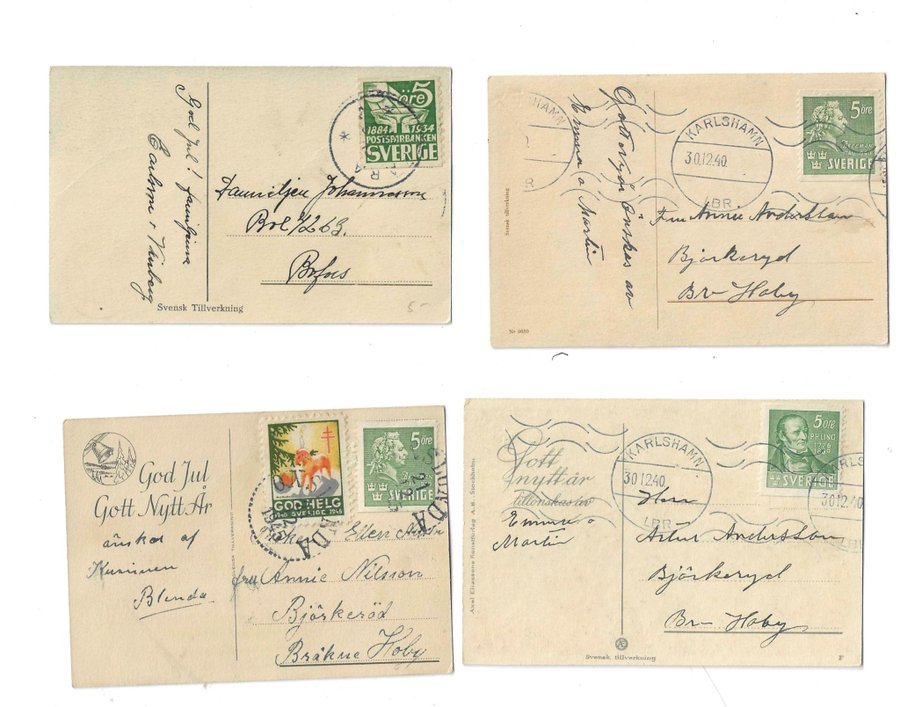 God Jul! familjen
5 öre
1884 1934
POSTSPARBANKEN
SVERIGE
Familjen Johansson
Box 1263.
Bofors
Svensk Tillverkning
5-
Gott nytt år önskas av
Emma o Martin
Svensk tillverkning
KARLSHAMN
30.12.40
LBR
5 öre
SVERIGE
Fru Annie Andersson
Björkeryd
Br-Hoby
God Jul
Gott Nytt År
önskas af
Kusinen
Blenda
GOD HELG
SVERIGE
5 öre
SVERIGE
Ellen
fru Annie Nilsson
Björkeröd
Bräkne Hoby
Gott
nytt år
tillönskas av
Emma o
Martin
Axel Eliassons Konstförlag A.-B. Stockholm
KARLSHAMN
30.12.40
LBR
5 öre
P.H. LING
1776
1839
SVERIGE
KARLS
30.12.40
Herr
Artur Andersson
Björkeryd
Br-Hoby
Svensk tillverkning